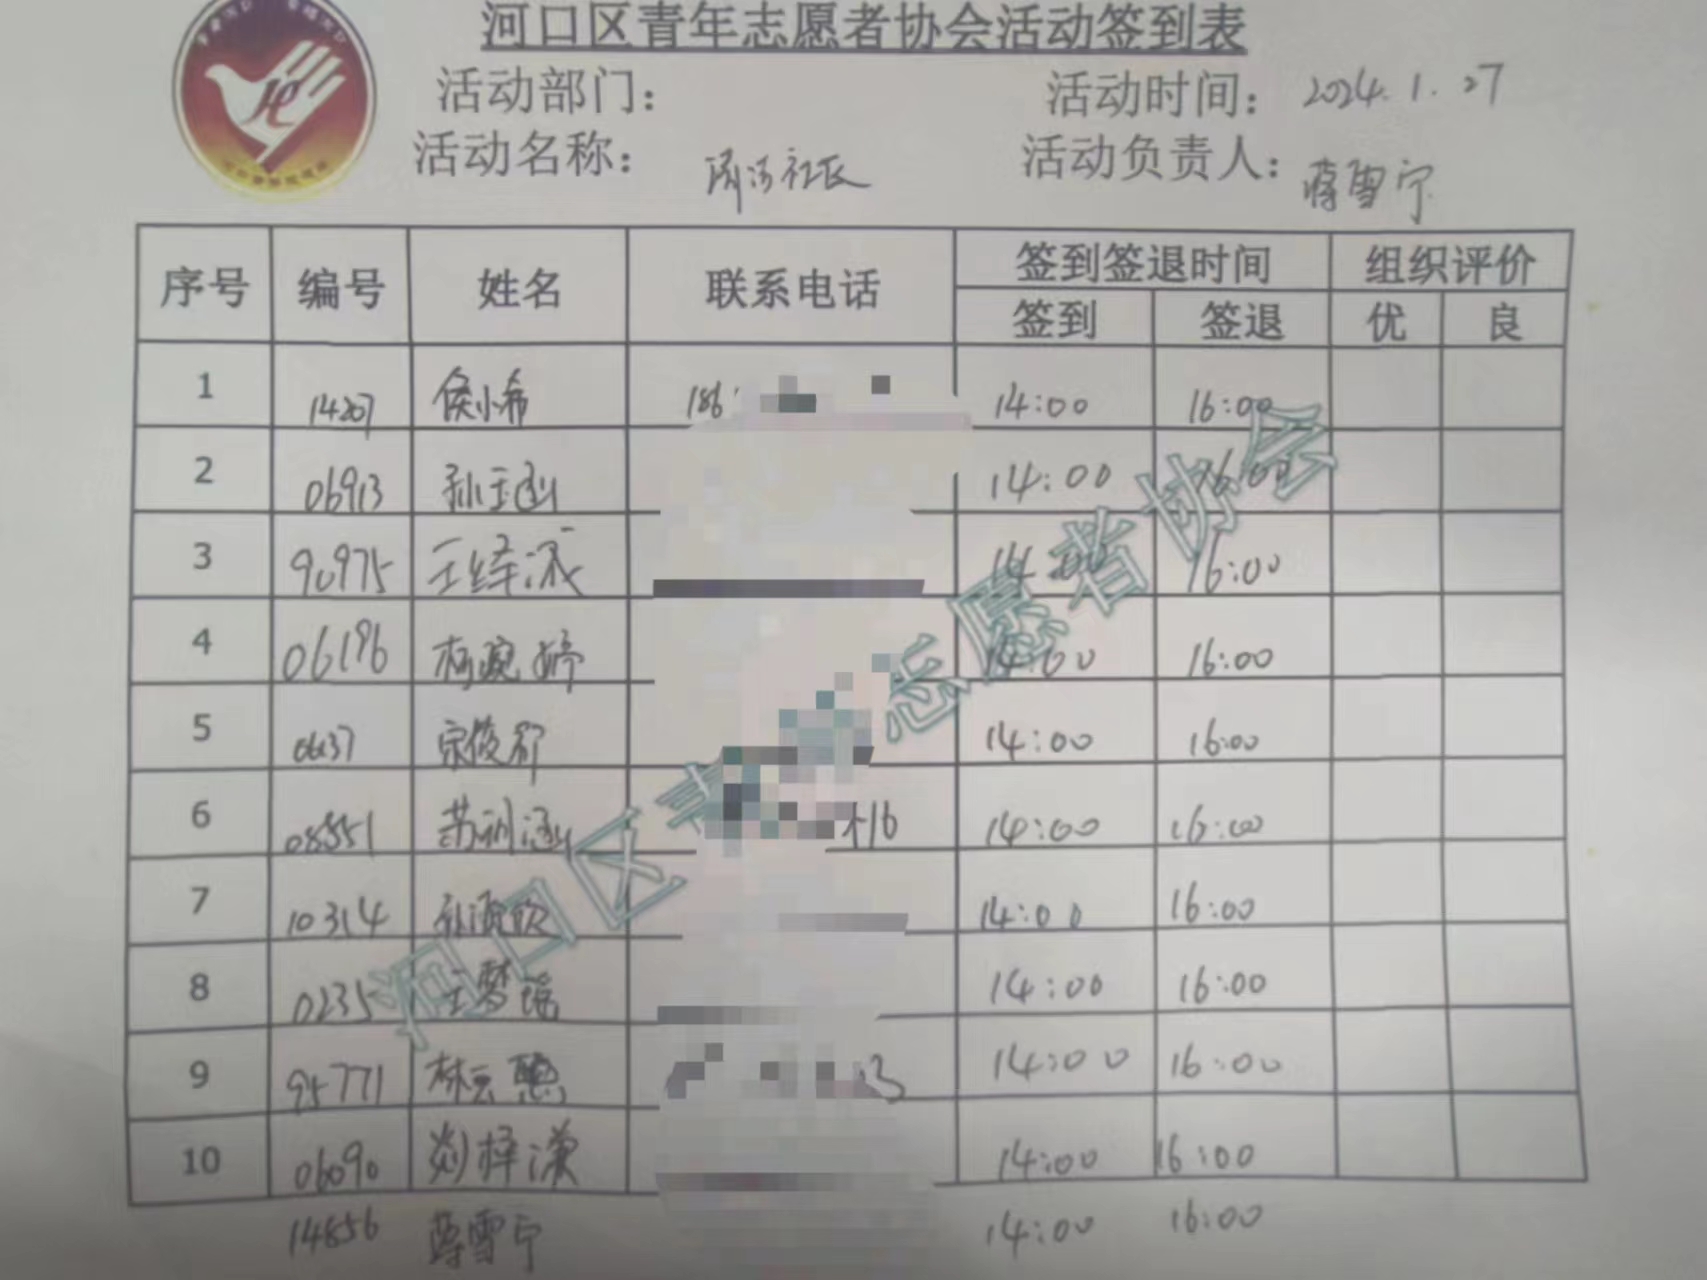 河口区青年志愿者协会活动签到表
活动部门：
活动时间：2024.1.27
活动名称：社长
活动负责人：蒋雪宁
序号 编号 姓名 联系电话 签到签退时间 组织评价
签到 签退 优 良
1 14207 侯小希 186 14:00 16:00
2 06913 孙玉涵 14:00 16:00
3 90975 王绎 14:00 16:00
4 06196 柯婉婷 14:00 16:00
5 宋俊 14:00 16:00
6 08551 苏涵 16 14:00 16:00
7 10314 孙欣 14:00 16:00
8 0235 王梦瑶 14:00 16:00
9 95771 林云慧 3 14:00 16:00
10 06090 梓潇 14:00 16:00
14856 蒋雪宁 14:00 16:00
河口区青 志愿者协会